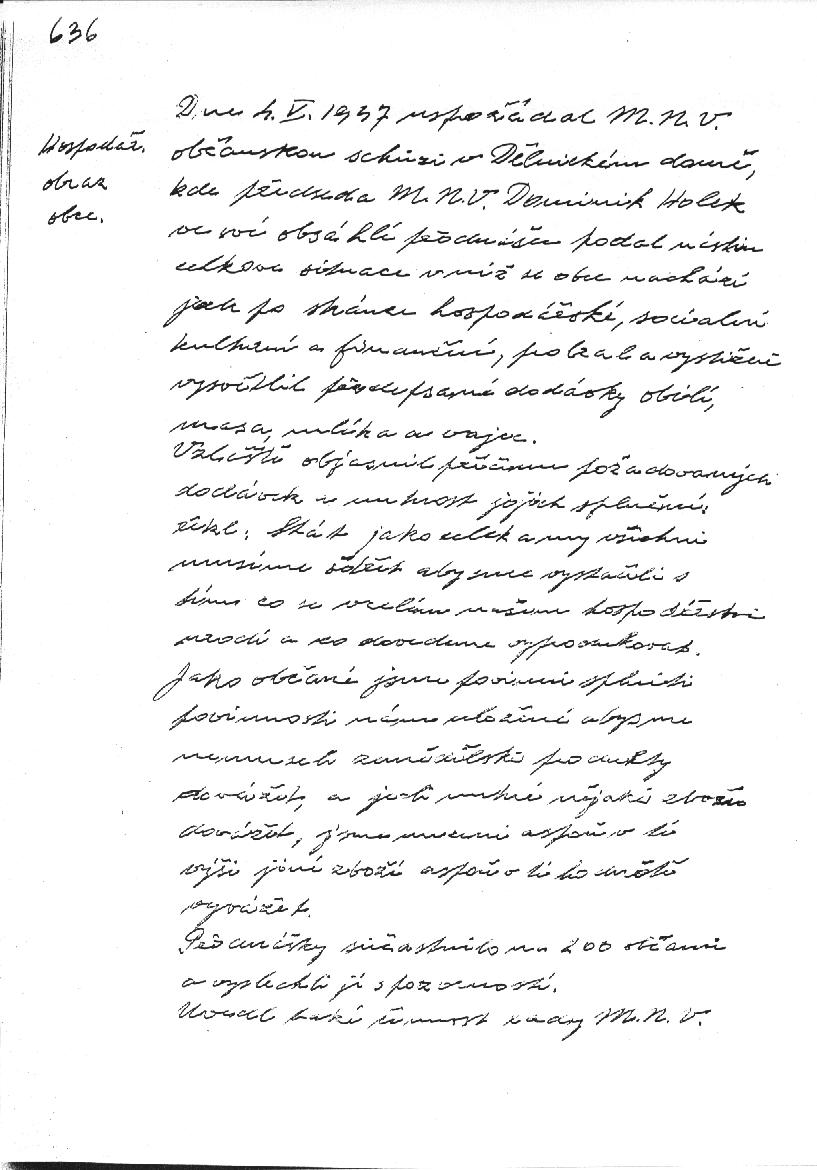 636
Hospodář.
obraz
obce.
Dne 4. V. 1957 uspořádal M.N.V.
občanskou schůzi v Dělnickém domě,
kde předseda M.N.V. Dominik Holek
ve své obsáhlé přednášce podal nástin
celkové situace v níž se obec nachází
jak po stránce hospodářské, sociální
kulturní a finanční, probral a vystižně
vysvětlil předepsané dodávky obilí,
masa, mléka a vajec.
Vzláště objasnil příčinu požadovaných
dodávek a nutnost jejich splnění:
řekl: Stát jako celek a my všichni
musíme šdět aby sme vystačili s
tím co se v celém našem hospodářství
urodí a co dovedeme vyprodukovat.
Jako občané jsme povinni splniti
povinnosti nám uložené aby sme
nemuseli zemědělské produkty
dovážet, a je-li nutné nějaké zboží
dovážet, jsme nuceni aspoň v té
výši jiné zboží aspoň v té hodnotě
vyvážet.
Přednášky sůčastnilo na 200 občanů
a vyslechli ji s pozorností.
Uvedl také činnost rady M.N.V.